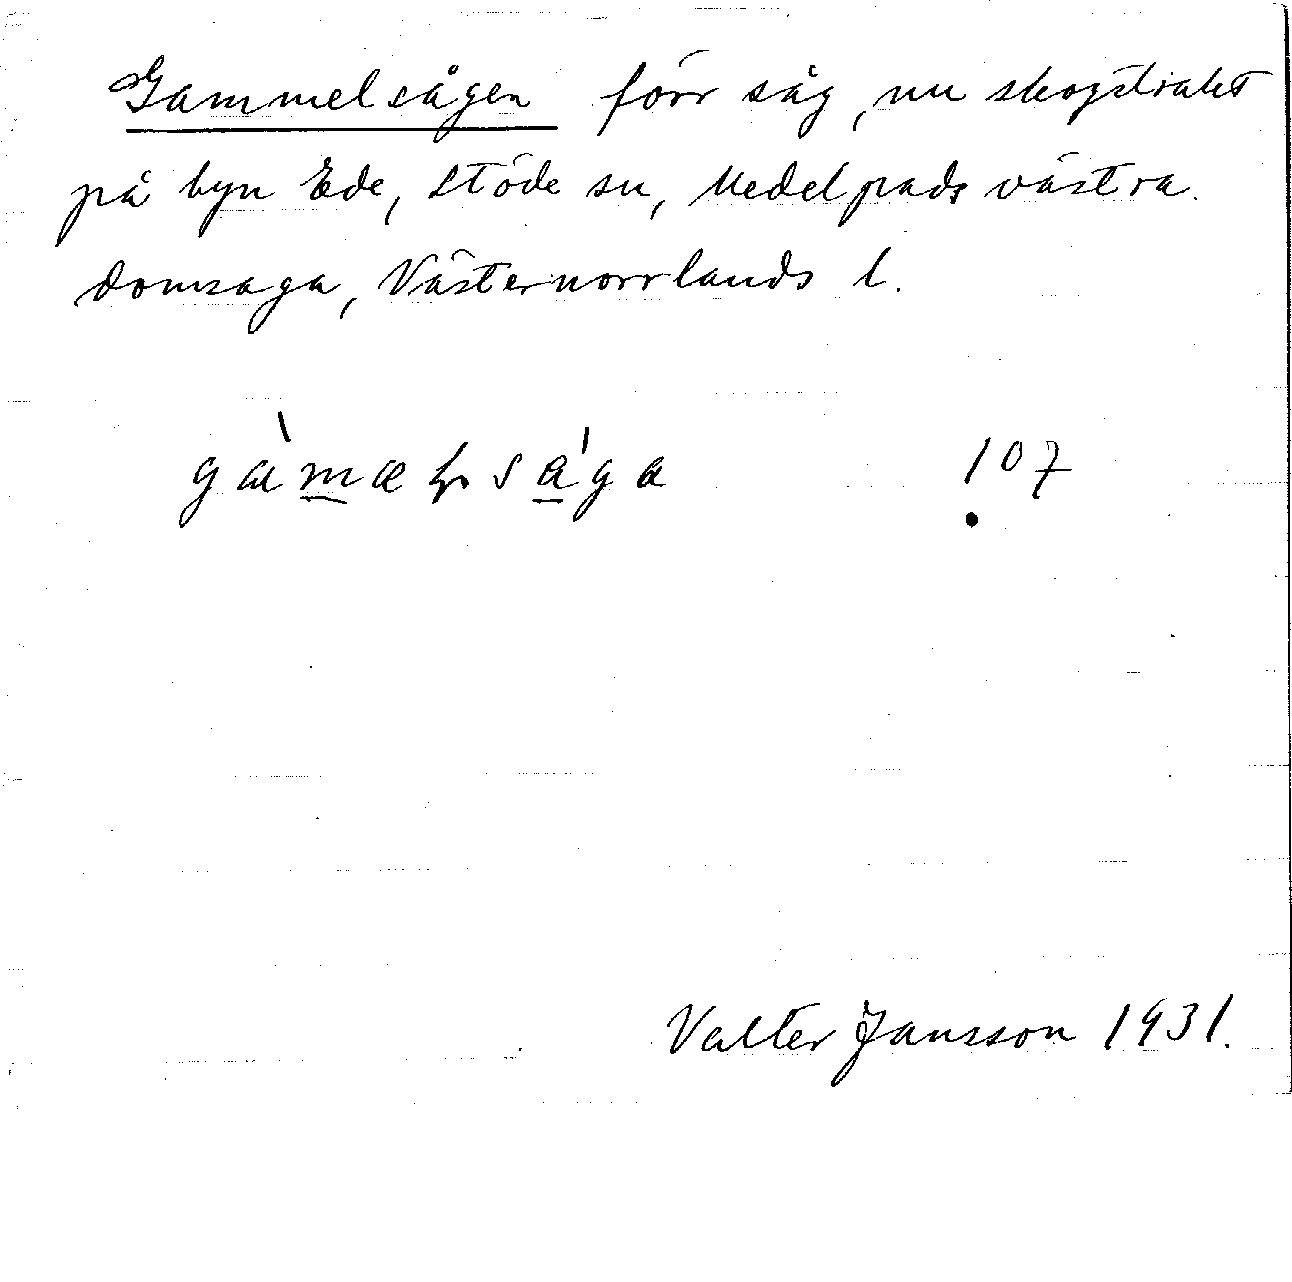 Gammelsågen förr såg, nu skogstrakt
på byn Ede, Stöde sn, Medelpads västra
domsaga, Västernorrlands l.
107
Valter Jansson 1931.